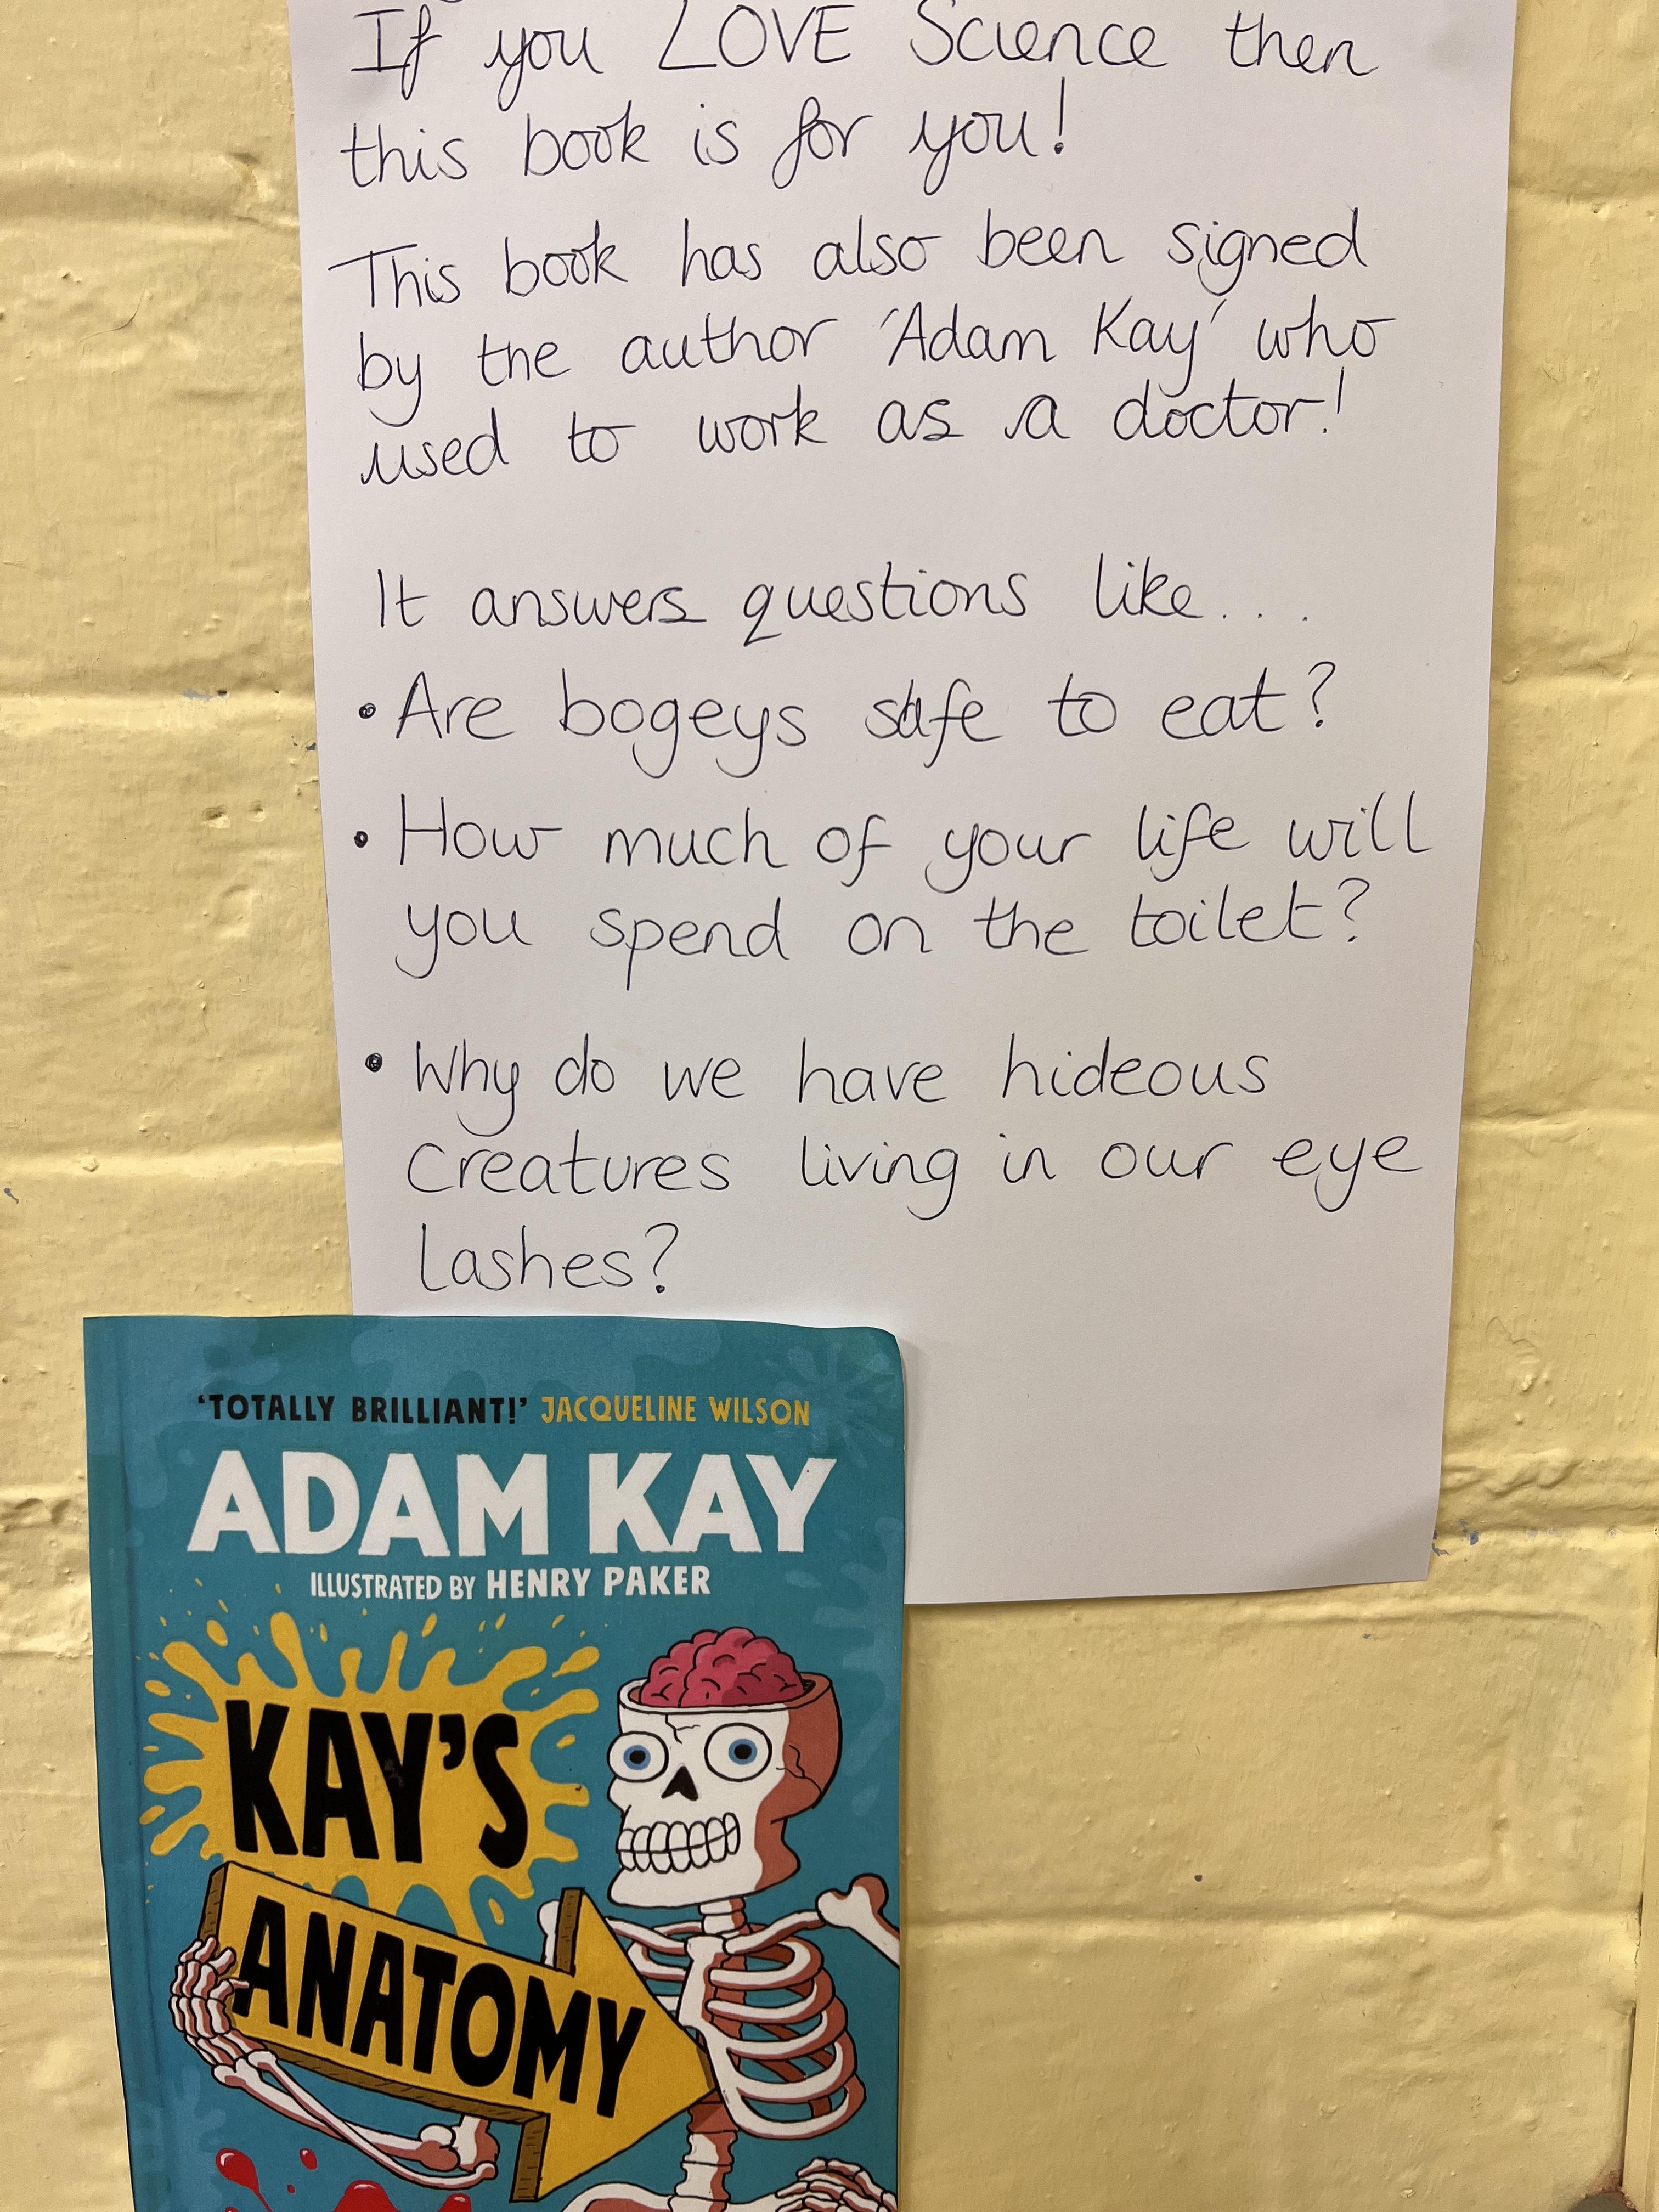 If you LOVE Science then
this book is for you!
This book has also been signed
by the author 'Adam Kay' who
used to work as a doctor!
It answers questions like...
• Are bogeys safe to eat?
• How much of your life will
you spend on the toilet?
• Why do we have hideous
creatures living in our eye
lashes?
'TOTALLY BRILLIANT!' JACQUELINE WILSON
ADAM KAY
ILLUSTRATED BY HENRY PAKER
KAY'S
ANATOMY